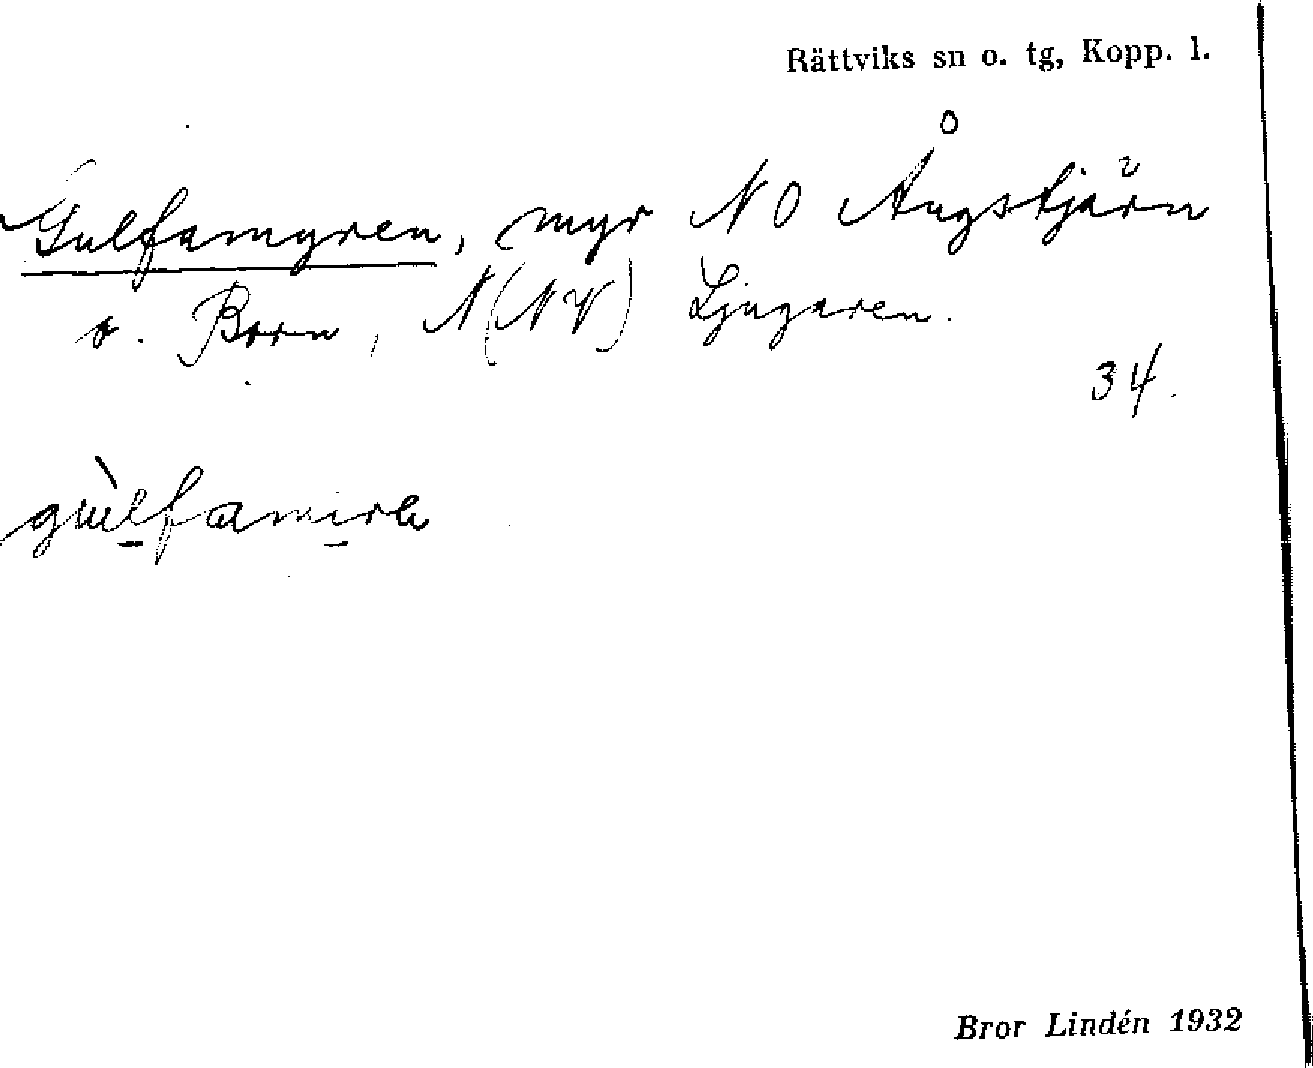 Rättviks sn o. tg, Kopp. l.
Gulfamyren, myr NO Ångstjärn
o. Born, N(NV) Ljugaren.
34.
gùlfamirɑ
Bror Lindén 1932